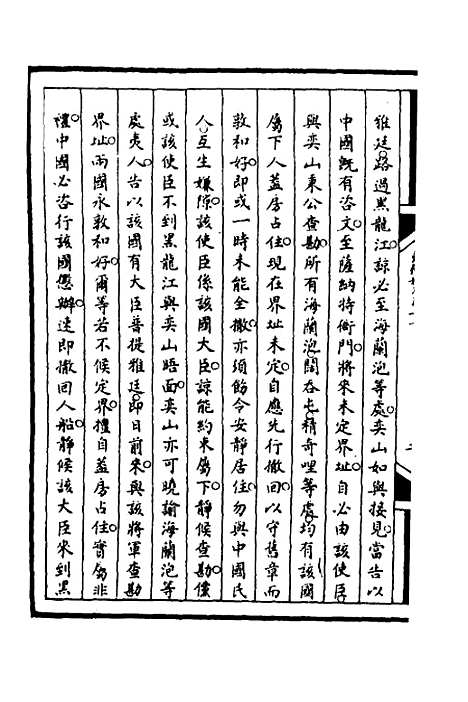 雅廷路過黑龍江諒必至海蘭泡等處奕山如與接見當告以
中國旣有咨文至薩納特衙門將來未定界址自必由該使臣
與奕山秉公查勘所有海蘭泡闊吞屯精奇哩等處均有該國
屬下人蓋房占住現在界址未定自應先行撤回以守舊章而
敦和好即或一時未能全撤亦須飭令安靜居住勿與中國民
人互生嫌隙該使臣係該國大臣諒能約束屬下靜候查勘儻
或該使臣不到黑龍江與奕山晤面奕山亦可曉諭海蘭泡等
處夷人告以該國有大臣菩提雅廷即日前來與該將軍查勘
界址兩國永敦和好爾等若不候定界擅自蓋房占住實屬非
禮中國必咨行該國懲辦速即撤回人船靜候該大臣來到黑